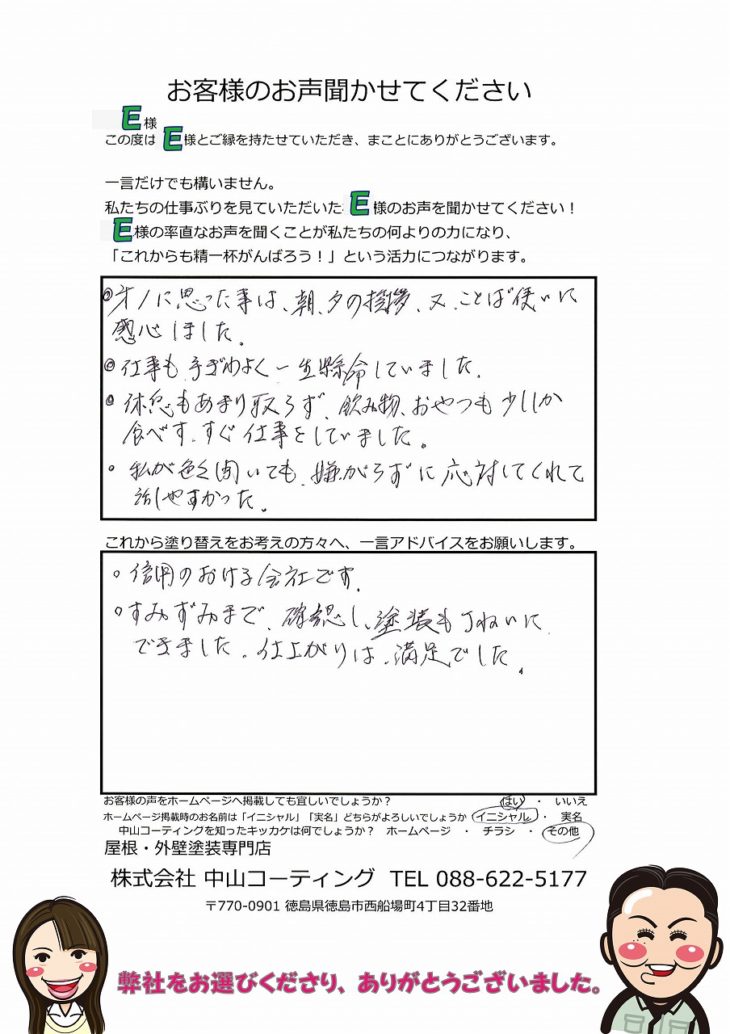 お客様のお声聞かせてください
E様
この度は E様とご縁を持たせていただき、まことにありがとうございます。
一言だけでも構いません。
私たちの仕事ぶりを見ていただいた E様のお声を聞かせてください！
E様の率直なお声を聞くことが私たちの何よりの力になり、
「これからも精一杯がんばろう！」という活力につながります。
◎オ1に思った事は、朝、夕の挨拶、又、ことば使いに
感心しました。
◎仕事も、手ぎわよく一生懸命していました。
◎休息もあまり取らず、飲み物、おやつも少ししか
食べず、すぐ仕事をしていました。
○私が色々聞いても、嫌がらずに応対してくれて
話しやすかった。
これから塗り替えをお考えの方々へ、一言アドバイスをお願いします。
○信用のおける会社です。
○すみずみまで、確認し、塗装も丁ねいに
できました。仕上がりは、満足でした。
お客様の声をホームページへ掲載しても宜しいでしょうか？ はい ・ いいえ
ホームページ掲載時のお名前は「イニシャル」「実名」どちらがよろしいでしょうか イニシャル ・ 実名
中山コーティングを知ったキッカケは何でしょうか？ ホームページ ・ チラシ ・ その他
屋根・外壁塗装専門店
株式会社 中山コーティング TEL 088-622-5177
〒770-0901 徳島県徳島市西船場町4丁目32番地
弊社をお選びくださり、ありがとうございました。